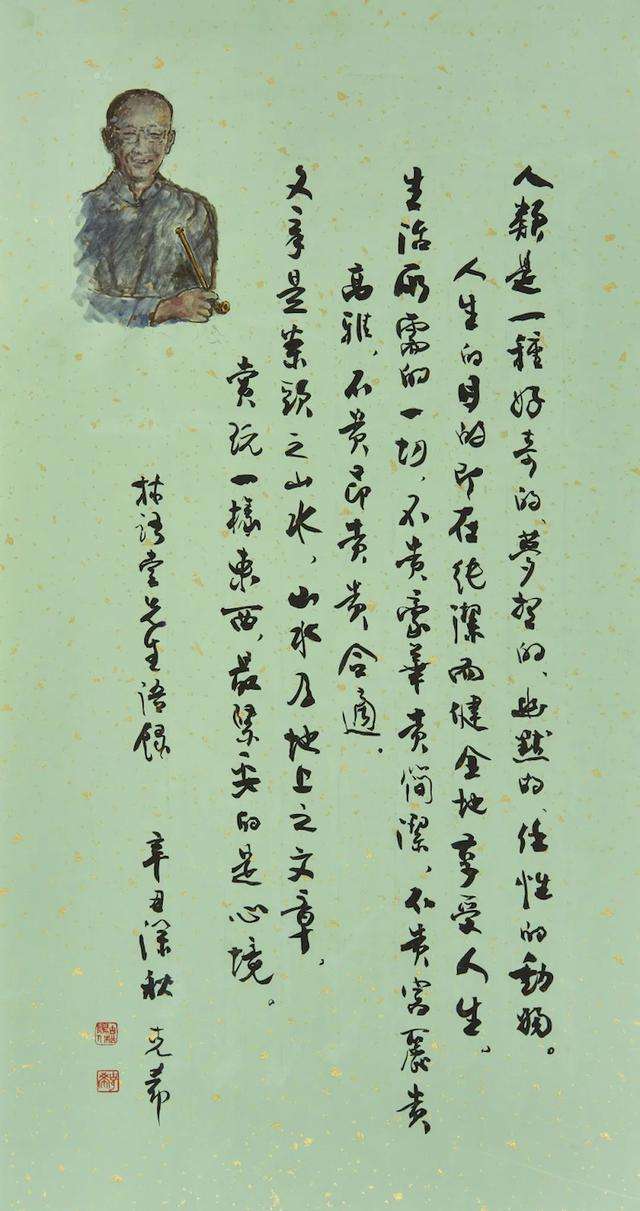 人類是一種好奇的、夢想的、幽默的、任性的動物。
人生的目的即在純潔而健全地享受人生。
生活所需的一切，不貴豪華貴簡潔，不貴富麗貴
高雅，不貴昂貴貴合適。
文章是案頭之山水，山水乃地上之文章。
賞玩一樣東西，最緊要的是心境。
林語堂先生語錄 辛丑深秋 克希